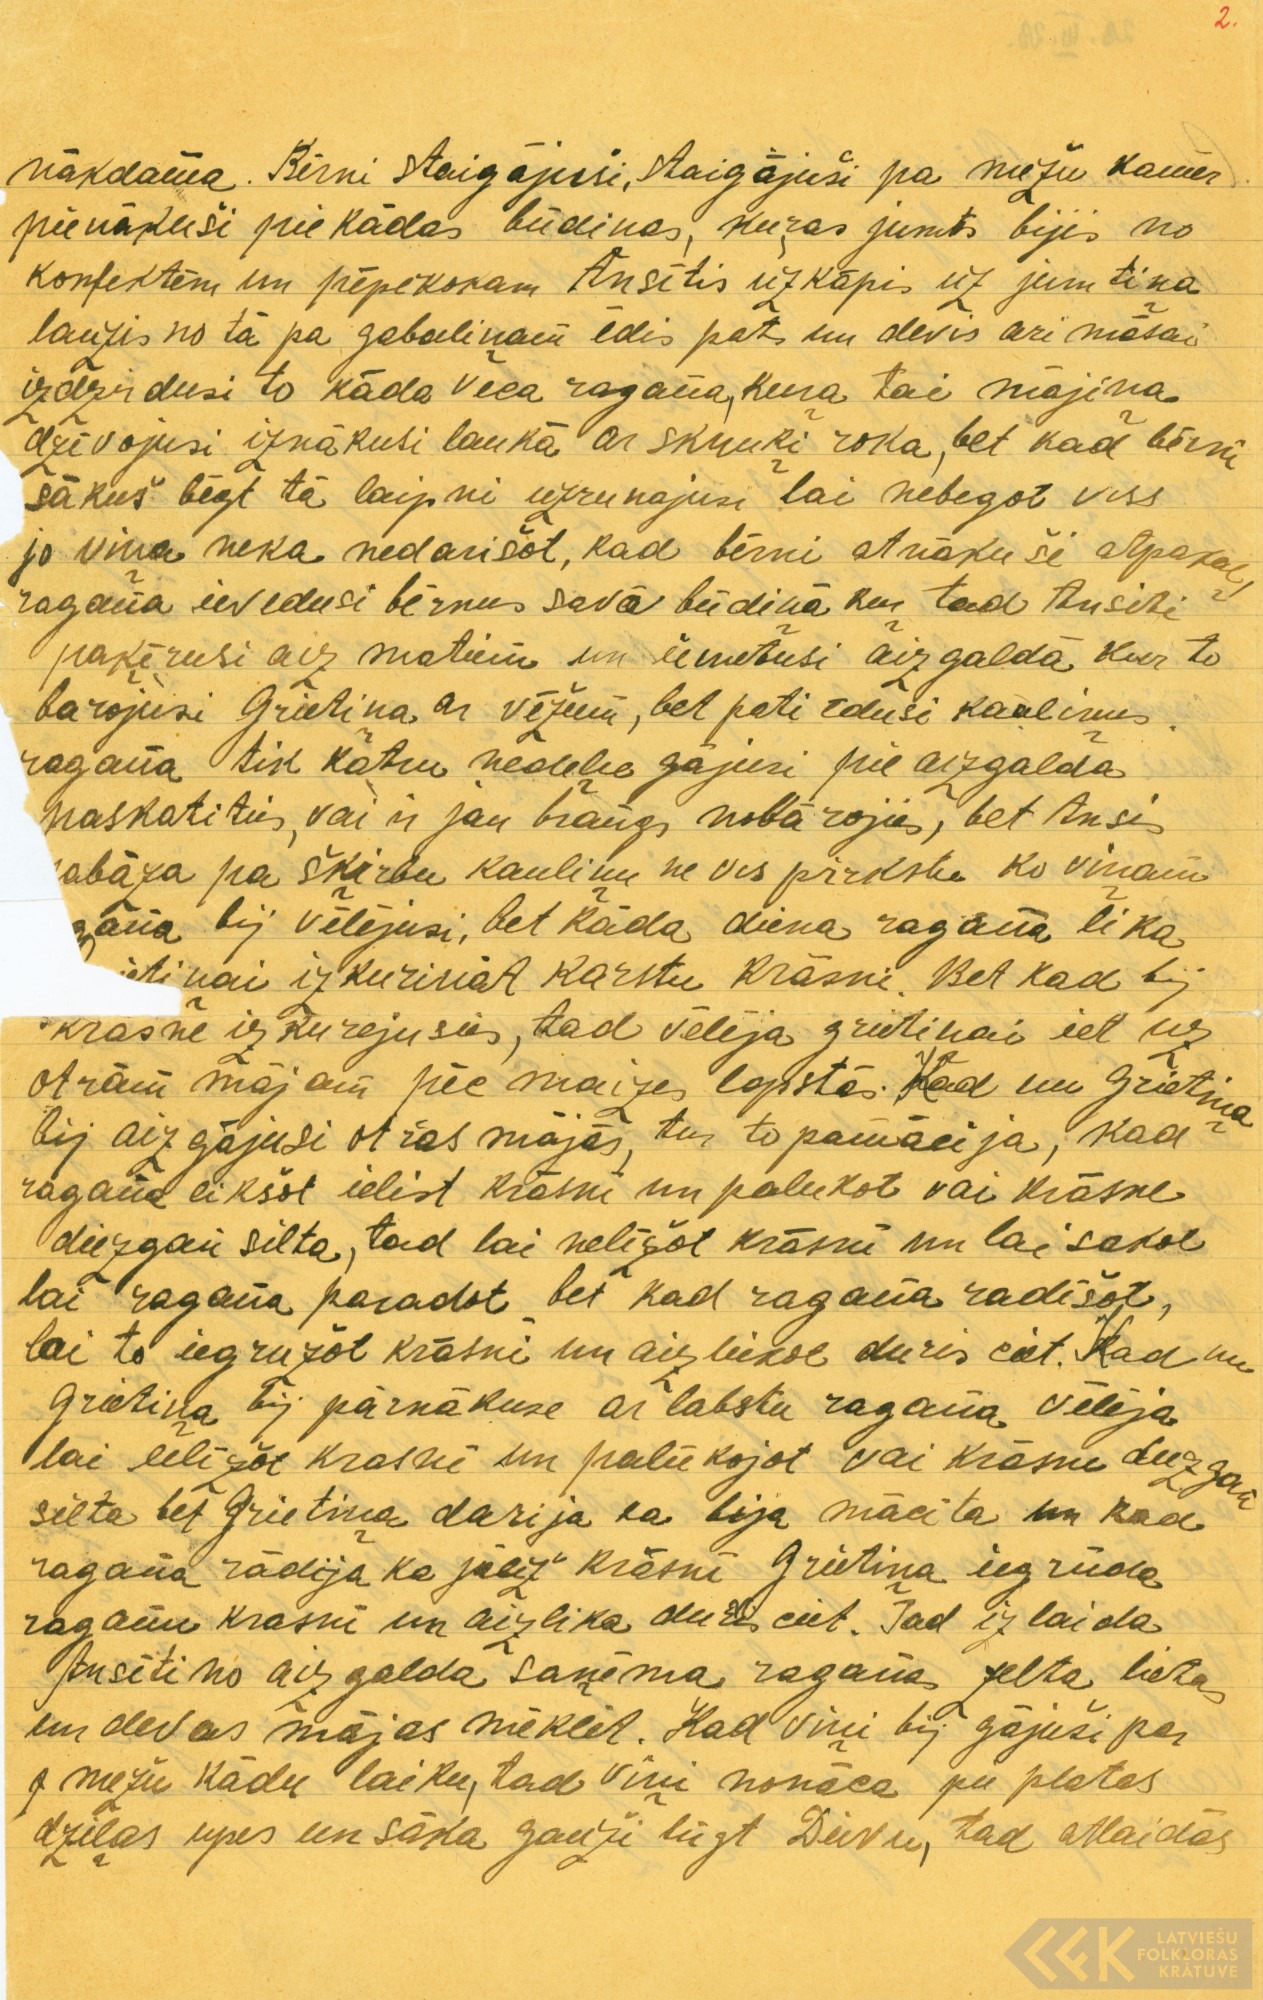 2.
nākdama. Bērni staigājuši, staigājuši pa mežu kamēr
pienākuši pie kādas būdiņas, kuŗas jumts bijis no
konfektēm un pēperkokam Ansītis uzkāpis uz jumtiņa
lauzis no tā pa gabaliņam ēdis pats un devis ari māsai
izdzirdusi to kāda veca ragana, kuŗa tai mājiņa
dzīvojusi iznākusi laukā ar skruķi roka, bet kad bērni
sākuš bēgt tā laipni uzrunajusi lai nebegot viss
jo viņa neka nedarišot, kad bērni atnākuši atpakaļ,
ragana ievedusi bērnus savā būdiņā kur tad Ansiti
pakērusi aiz matiem un iemetusi aizgaldā kur to
barojusi Grietiņa ar vēžiem, bet pati ēdusi kauliņus.
ragana tik kātru nedeļu gājusi pie aizgalda
paskatitiēs, vai ir jau brangs nobārojiēs, bet Ansis
pabāza pa šķirbu kauliņu ne vis pirkstu ko viņam
gana bij vēlējusi, bet kāda diena ragana lika
ietiņai izkurināt karstu krāsni. Bet kad bij
krasne izkurejusiēs, tad vēlēja grietiņai iet uz
otrām mājam pēc maizes lopstās. Kad nu Grietiņa
bij aizgājusi otras mājās, tur to pamācija, kad
ragana likšot ielist krāsnī un palukot vai krāsne
diezgan silta, tad lai neližot krāsnī un lai sakot
lai ragana paradot bet kad ragana radišot,
lai to iegružot krāsnī un aizliekot duris ciet. Kad nu
Grietiņa bij pārnākuse ar labstu ragana vēlēja
lai ieližot krasnī un palūkojot vai krāsne diezgan
silta bet Grietiņa darija ka bija mācita un kad
ragana rādija ka jāliz krāsnī Grietiņa iegrūda
raganu krasnī un aizlika duris ciet. Tad izlaida
Ansīti no aizgalda saņēma raganas zelta lietas
un devas mājas mēklēt. Kad viņi bij gājuši par
mežu kādu laiku, tad viņi nonāca pie platas
dziļas upes un sāka gauži lūgt Dievu, tad atlaidās
LATVIEŠU
FOLKLORAS
KRĀTUVE